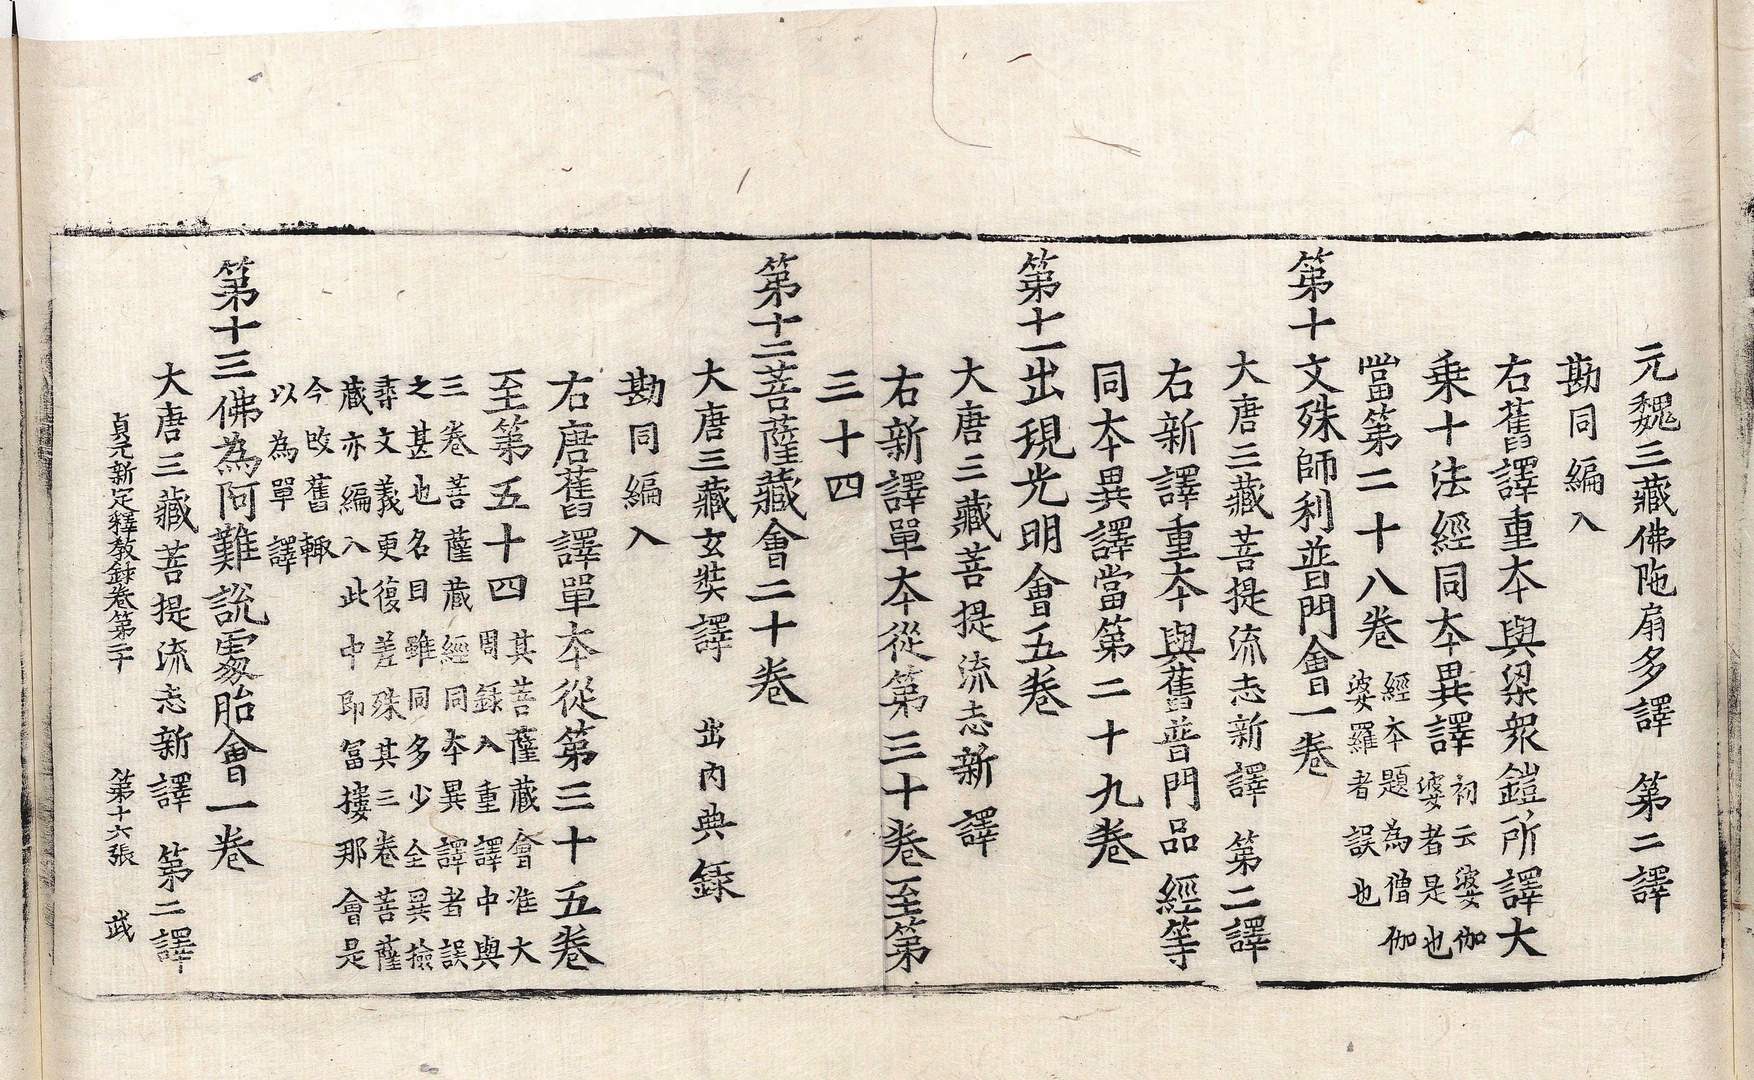 元魏三藏佛陁扇多譯　第二譯
勘同編入
右舊譯重本與梁衆鎧所譯大
乗十法經同本異譯初云婆伽
婆者是也
當第二十八卷經本題為僧伽
婆羅者誤也
第十文殊師利普門會一卷
大唐三藏菩提流志新譯　第二譯
右新譯重本與舊普門品經等
同本異譯當第二十九卷
第十一出現光明會五卷
大唐三藏菩提流志新譯
右新譯單本從第三十卷至第
三十四
第十二菩薩藏會二十卷
大唐三藏玄奘譯　出內典錄
勘同編入
右唐舊譯單本從第三十五卷
至第五十四其菩薩藏會准大
周錄入重譯中與
三卷菩薩藏經同本異譯者誤
之甚也名目雖同多少全異撿
尋文義更復差殊其三卷菩薩
藏亦編入此中即冨樓那會是
今改舊輙
以為單譯
第十三佛為阿難說處胎會一卷
大唐三藏菩提流志新譯　第二譯
貞元新定釋教錄卷第二十　第十六張　武